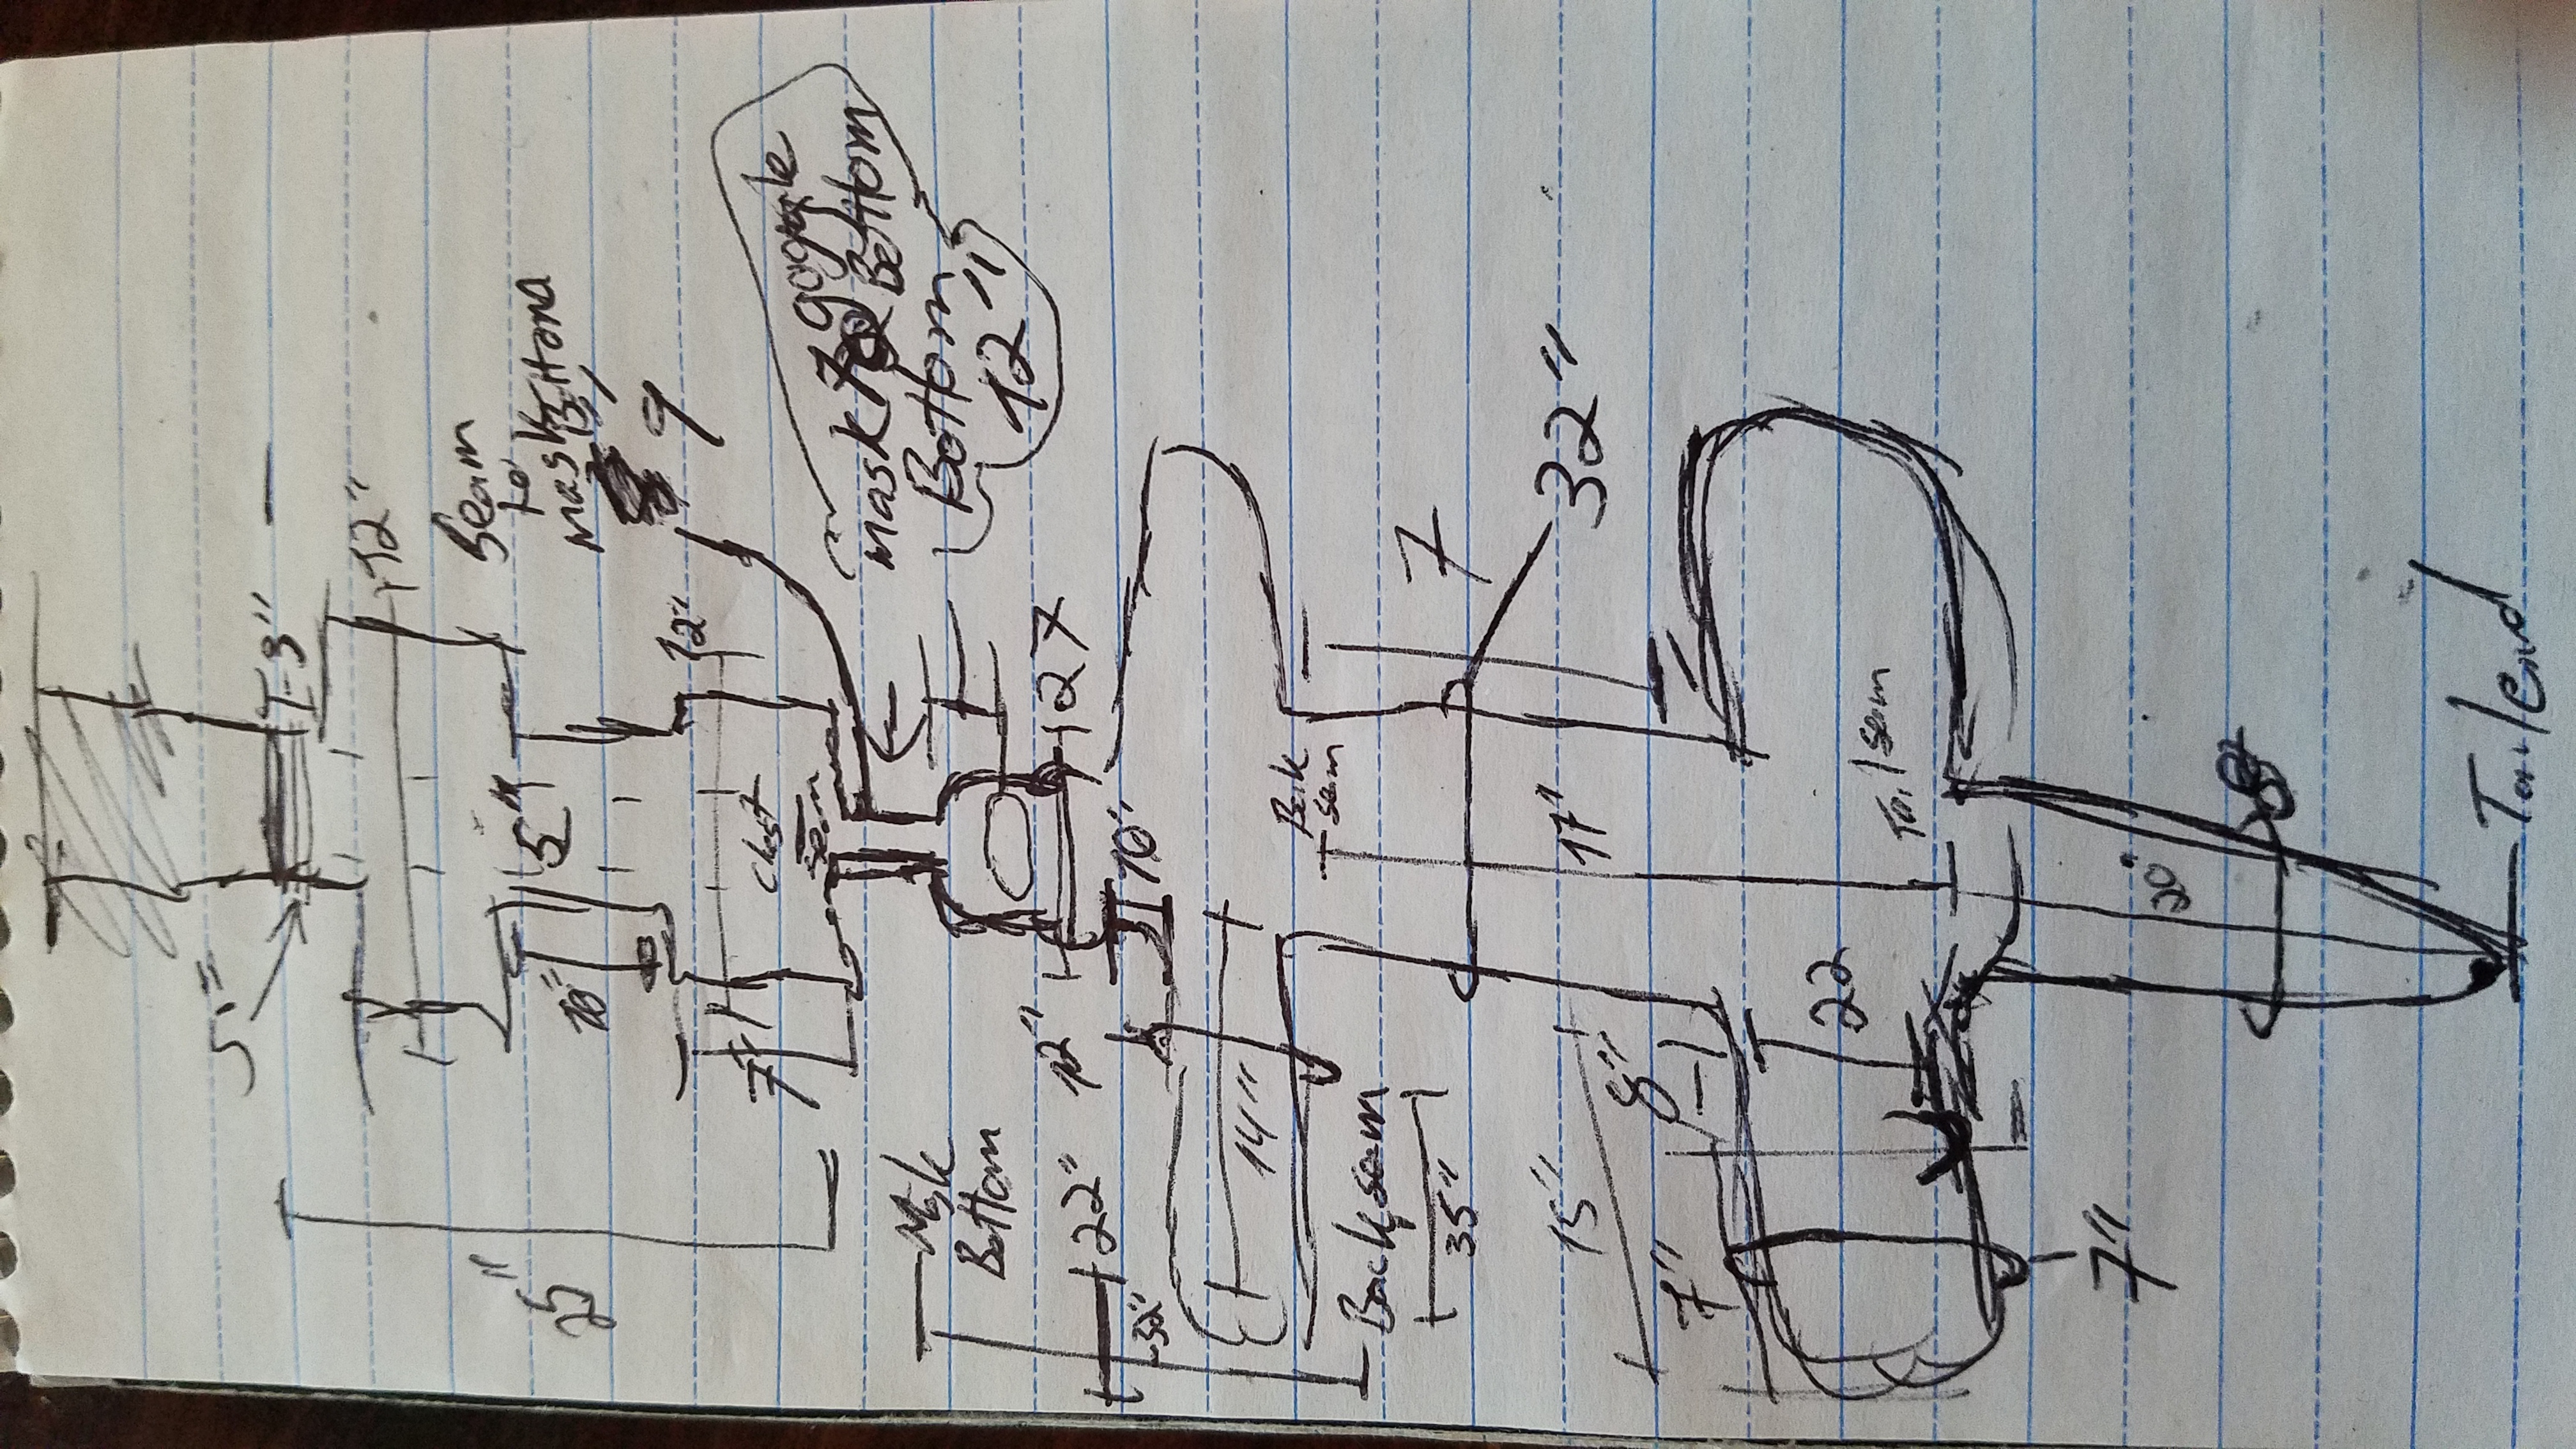 3"
12"
25"
Seam
to
mask Bottom
9"
5"
10"
12"
7"
Chest
seam
mask To goggle
Bottom
Bottom
12"
Mask
Bottom
22"
12"
27
32"
10"
14"
Back
seam
Back seam
35"
7
32"
15"
17"
8"
7"
22
Tail seam
7"
20"
Tail end